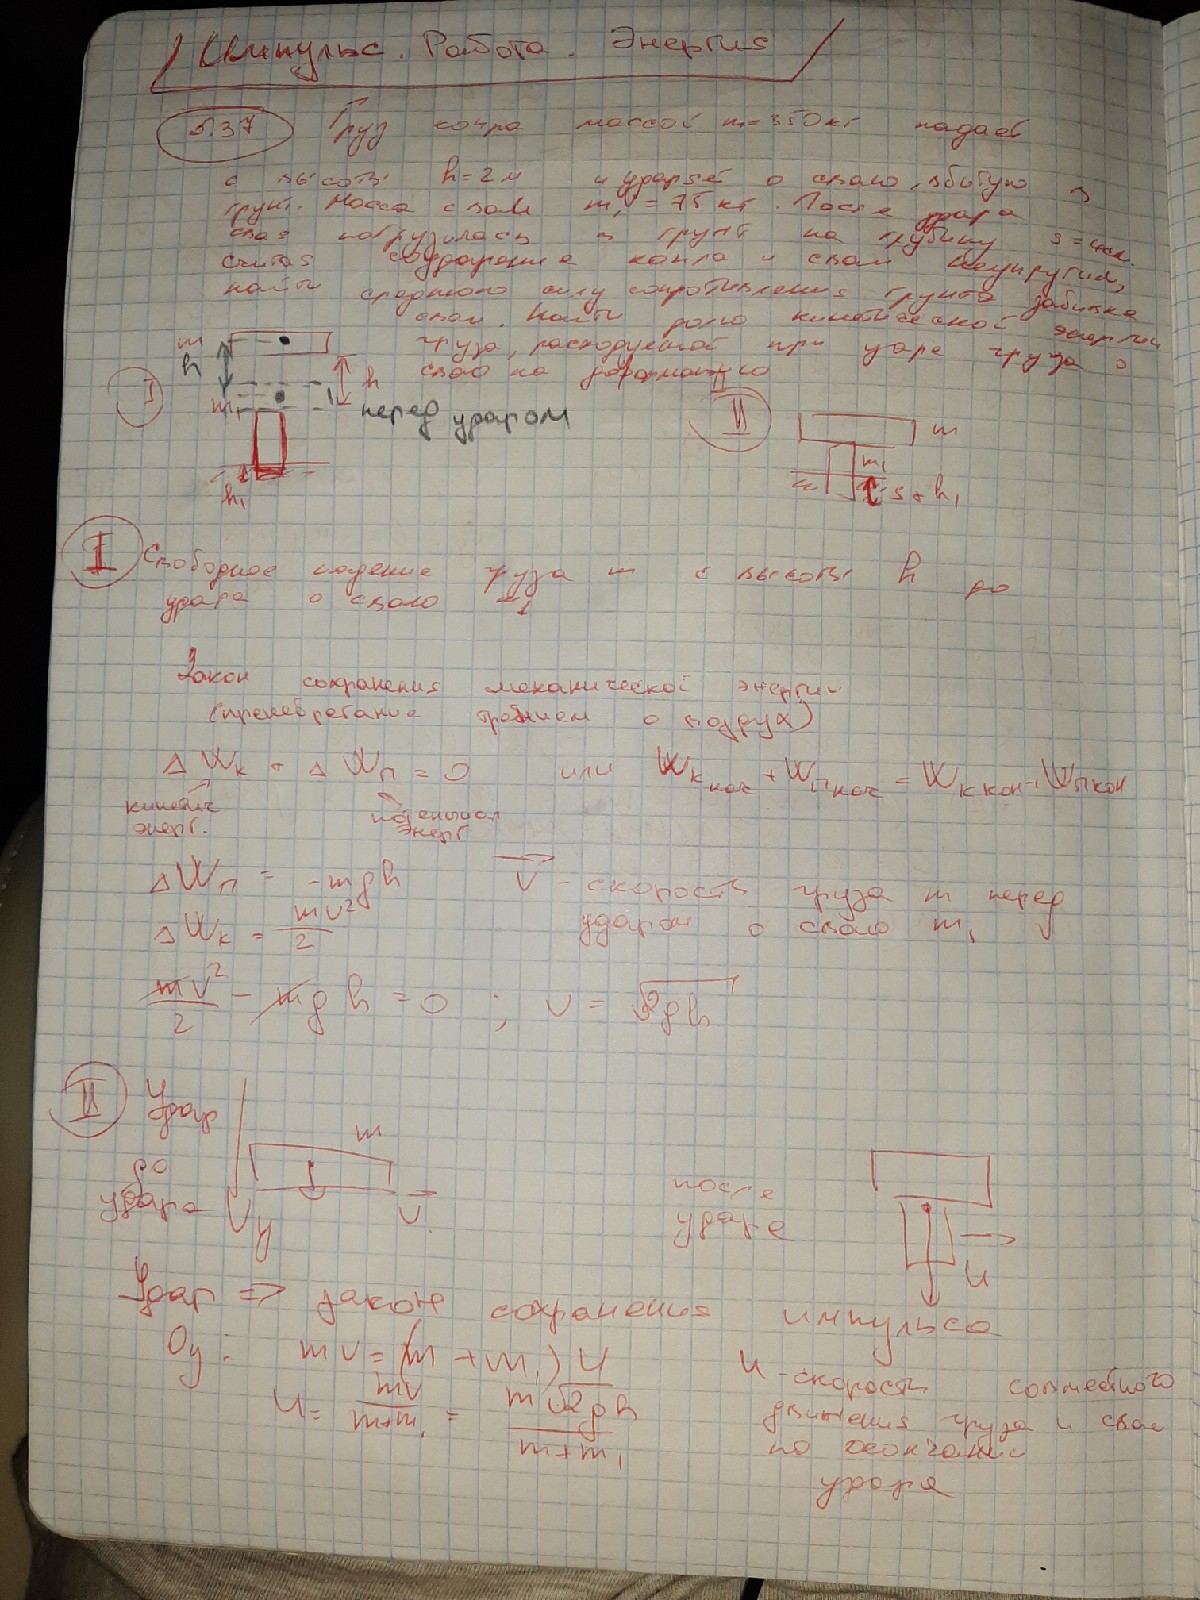 Импульс. Работа. Энергия
5.37 Груз копра массой m = 350 кг падает
с высоты h = 2 м и ударяет о сваю, вбитую в
грунт. Масса сваи m₁ = 75 кг. После удара
свая погрузилась в грунт на глубину s =
считая соударение копра и сваи неупругим,
найти среднюю силу сопротивления грунта забивке
сваи. Найти долю кинетической энергии
груза, расходуемой при ударе груза о
сваю на деформацию
m
h
h
I
m₁
перед ударом
h₁
II
m
m₁
s + h₁
I Свободное падение груза m с высоты h до
удара о сваю
Закон сохранения механической энергии
(пренебрегание трением о воздух)
Δ Wк + Δ Wп = 0 или Wк нач + Wп нач = Wк кон + Wп кон
кинетич энерг.
потенциал энерг
ΔWп = -mgh
v - скорость груза m перед
ΔWк = mv²/2
ударом о сваю m₁
mv²/2 - mgh = 0 ; v = √2gh
II Удар
m
до удара
y
v
после удара
u
Удар => закон сохранения импульса
Oy: mv = (m + m₁) u
u = mv/(m+m₁) = m√2gh/(m+m₁)
u - скорость совместного
движения груза и сваи
по окончании
удара